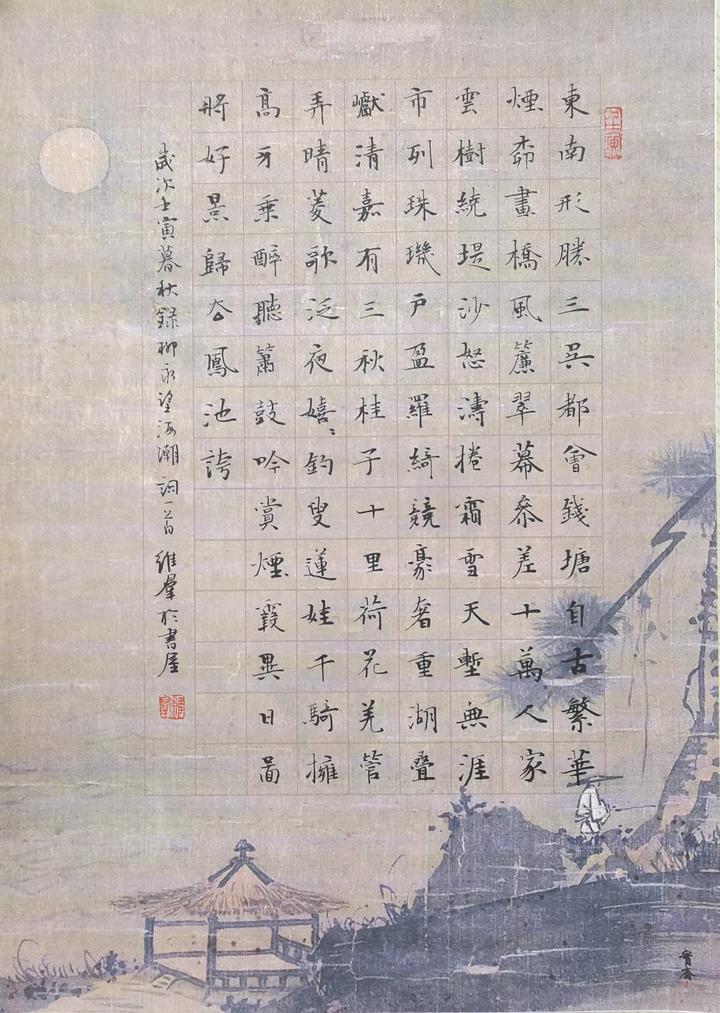 壬寅
東南形勝三吳都會錢塘自古繁華
煙桞畫橋風簾翠幕參差十萬人家
雲樹繞堤沙怒濤捲霜雪天塹無涯
市列珠璣戶盈羅綺競豪奢重湖叠
巘清嘉有三秋桂子十里荷花羌管
弄晴菱歌泛夜嬉〻釣叟蓮娃千騎擁
高牙乘醉聽簫鼓吟賞煙霞異日圖
將好景歸去鳳池誇
歲次壬寅暮秋錄柳永望海潮詞一首 維羣於書屋